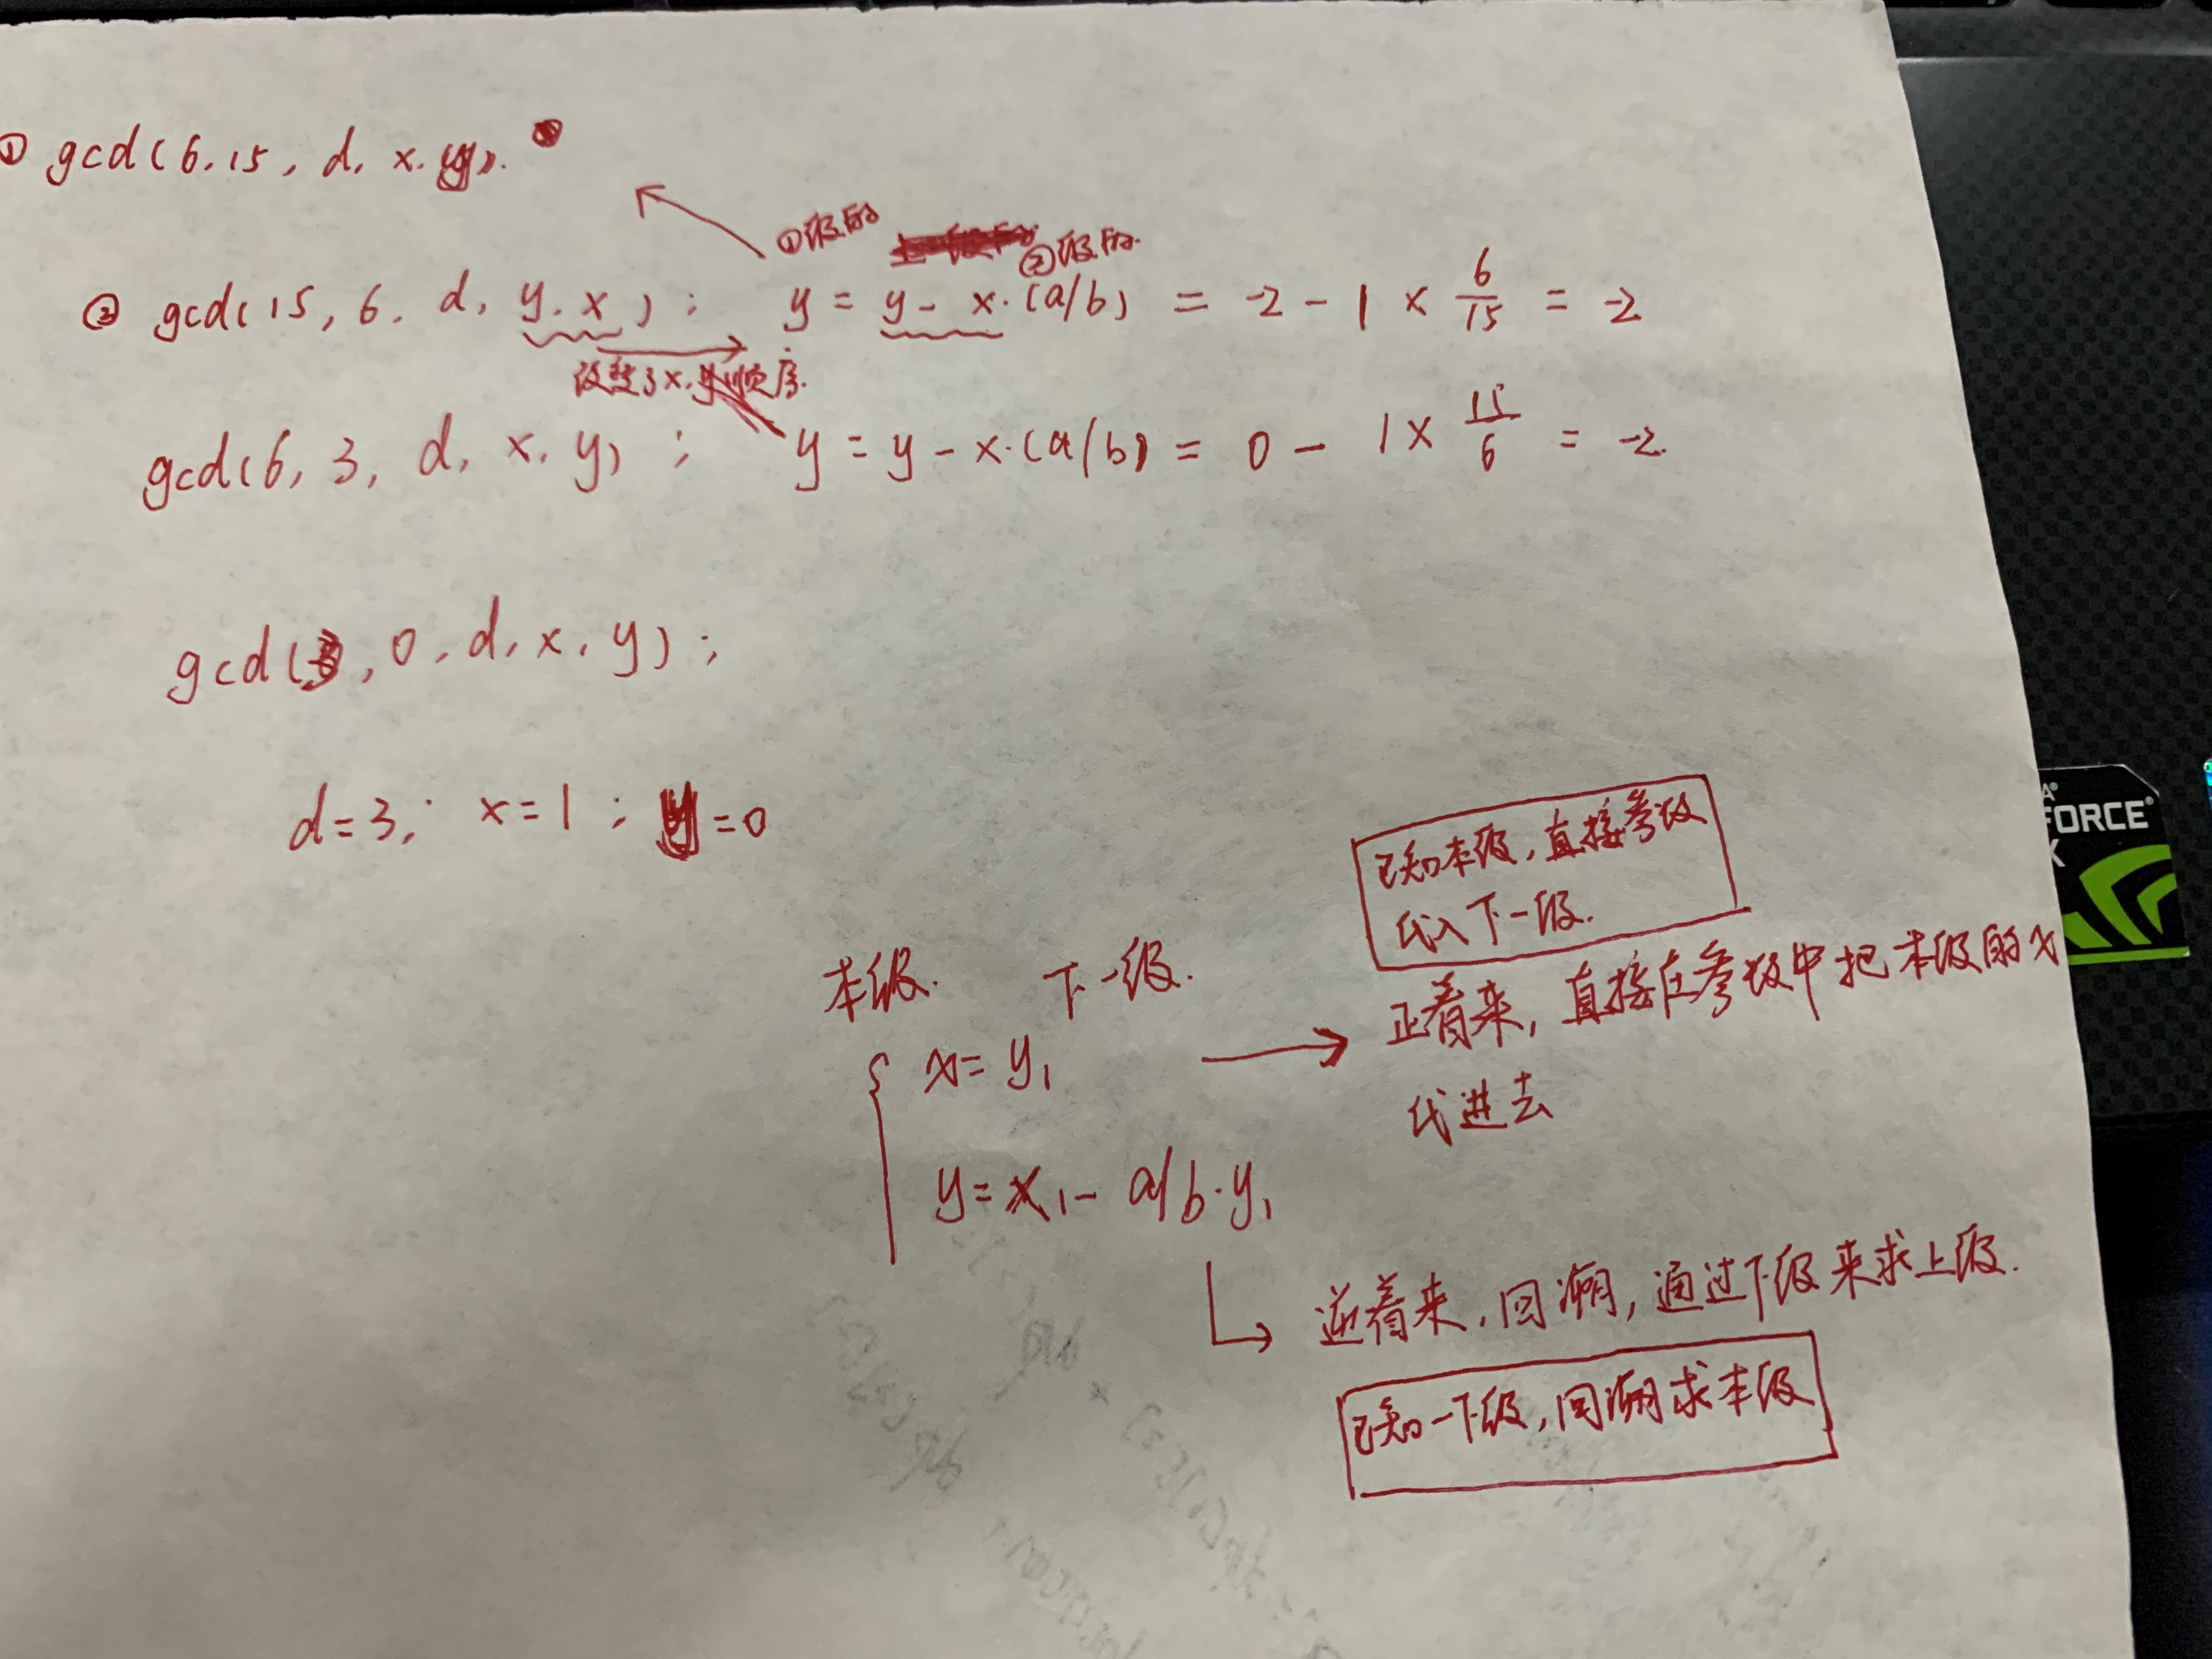 ① gcd(6,15, d, x, y).
①级的 ②级的.
② gcd(15, 6, d, y, x); y = y - x·(a/b) = -2 - 1 × 6/15 = -2
改变了x,y顺序.
gcd(6, 3, d, x, y) ; y = y - x·(a/b) = 0 - 1× 15/6 = -2.
gcd(3, 0, d, x, y) ;
d=3; x=1 ; y=0
已知本级,直接参数
代入下一级.
本级. 下一级.
正着来,直接在参数中把本级的x
代进去
x= y₁
y= x₁- a/b·y₁
逆着来,回溯,通过下级来求上级.
已知一下级,回溯求本级
FORCE
X